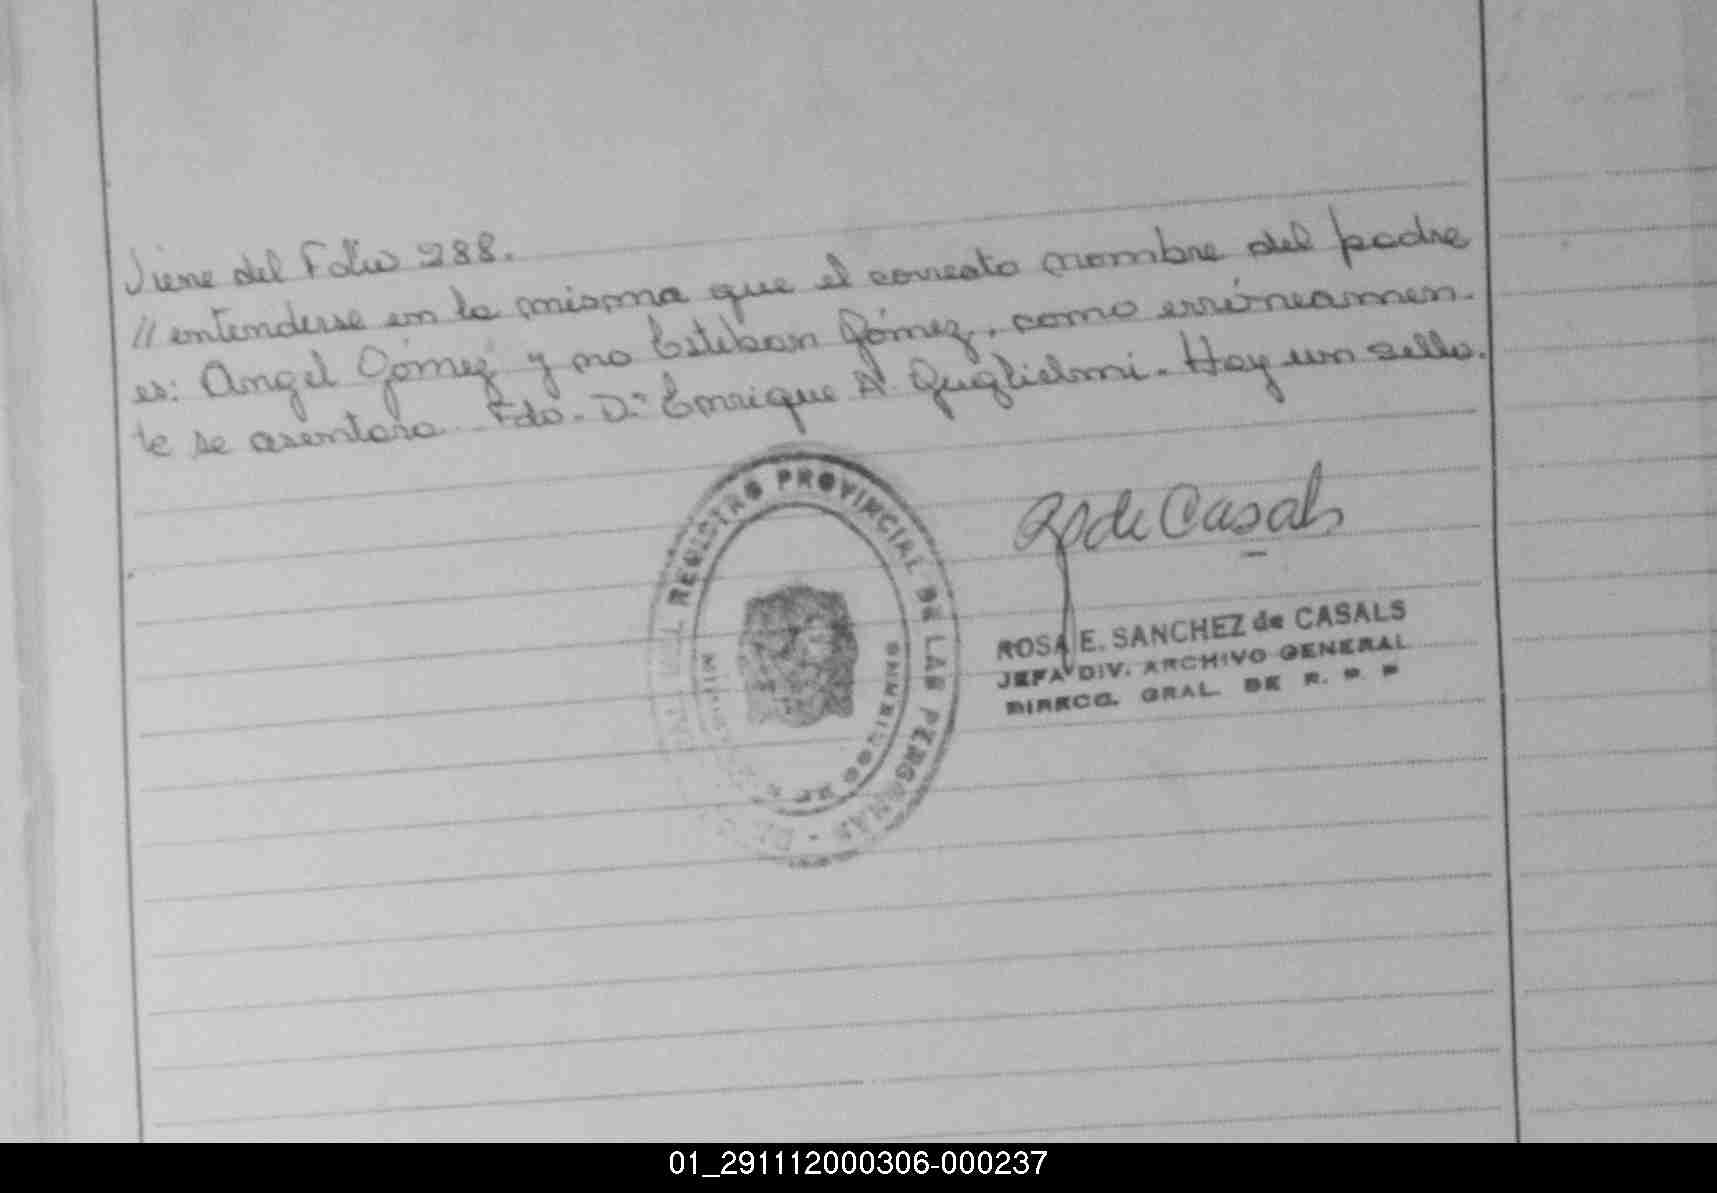 Viene del Folio 288.
// entenderse en la misma que el correcto nombre del padre
es: Angel Gómez y no Esteban Gómez, como erróneamen-
te se asentara. Fdo. Dr. Enrique A. Guglielmi. Hay un sello.
REGISTRO PROVINCIAL DE LAS PERSONAS
R de Casals
ROSA E. SANCHEZ de CASALS
JEFA DIV. ARCHIVO GENERAL
DIRECC. GRAL. DE R. P. P
01_291112000306-000237